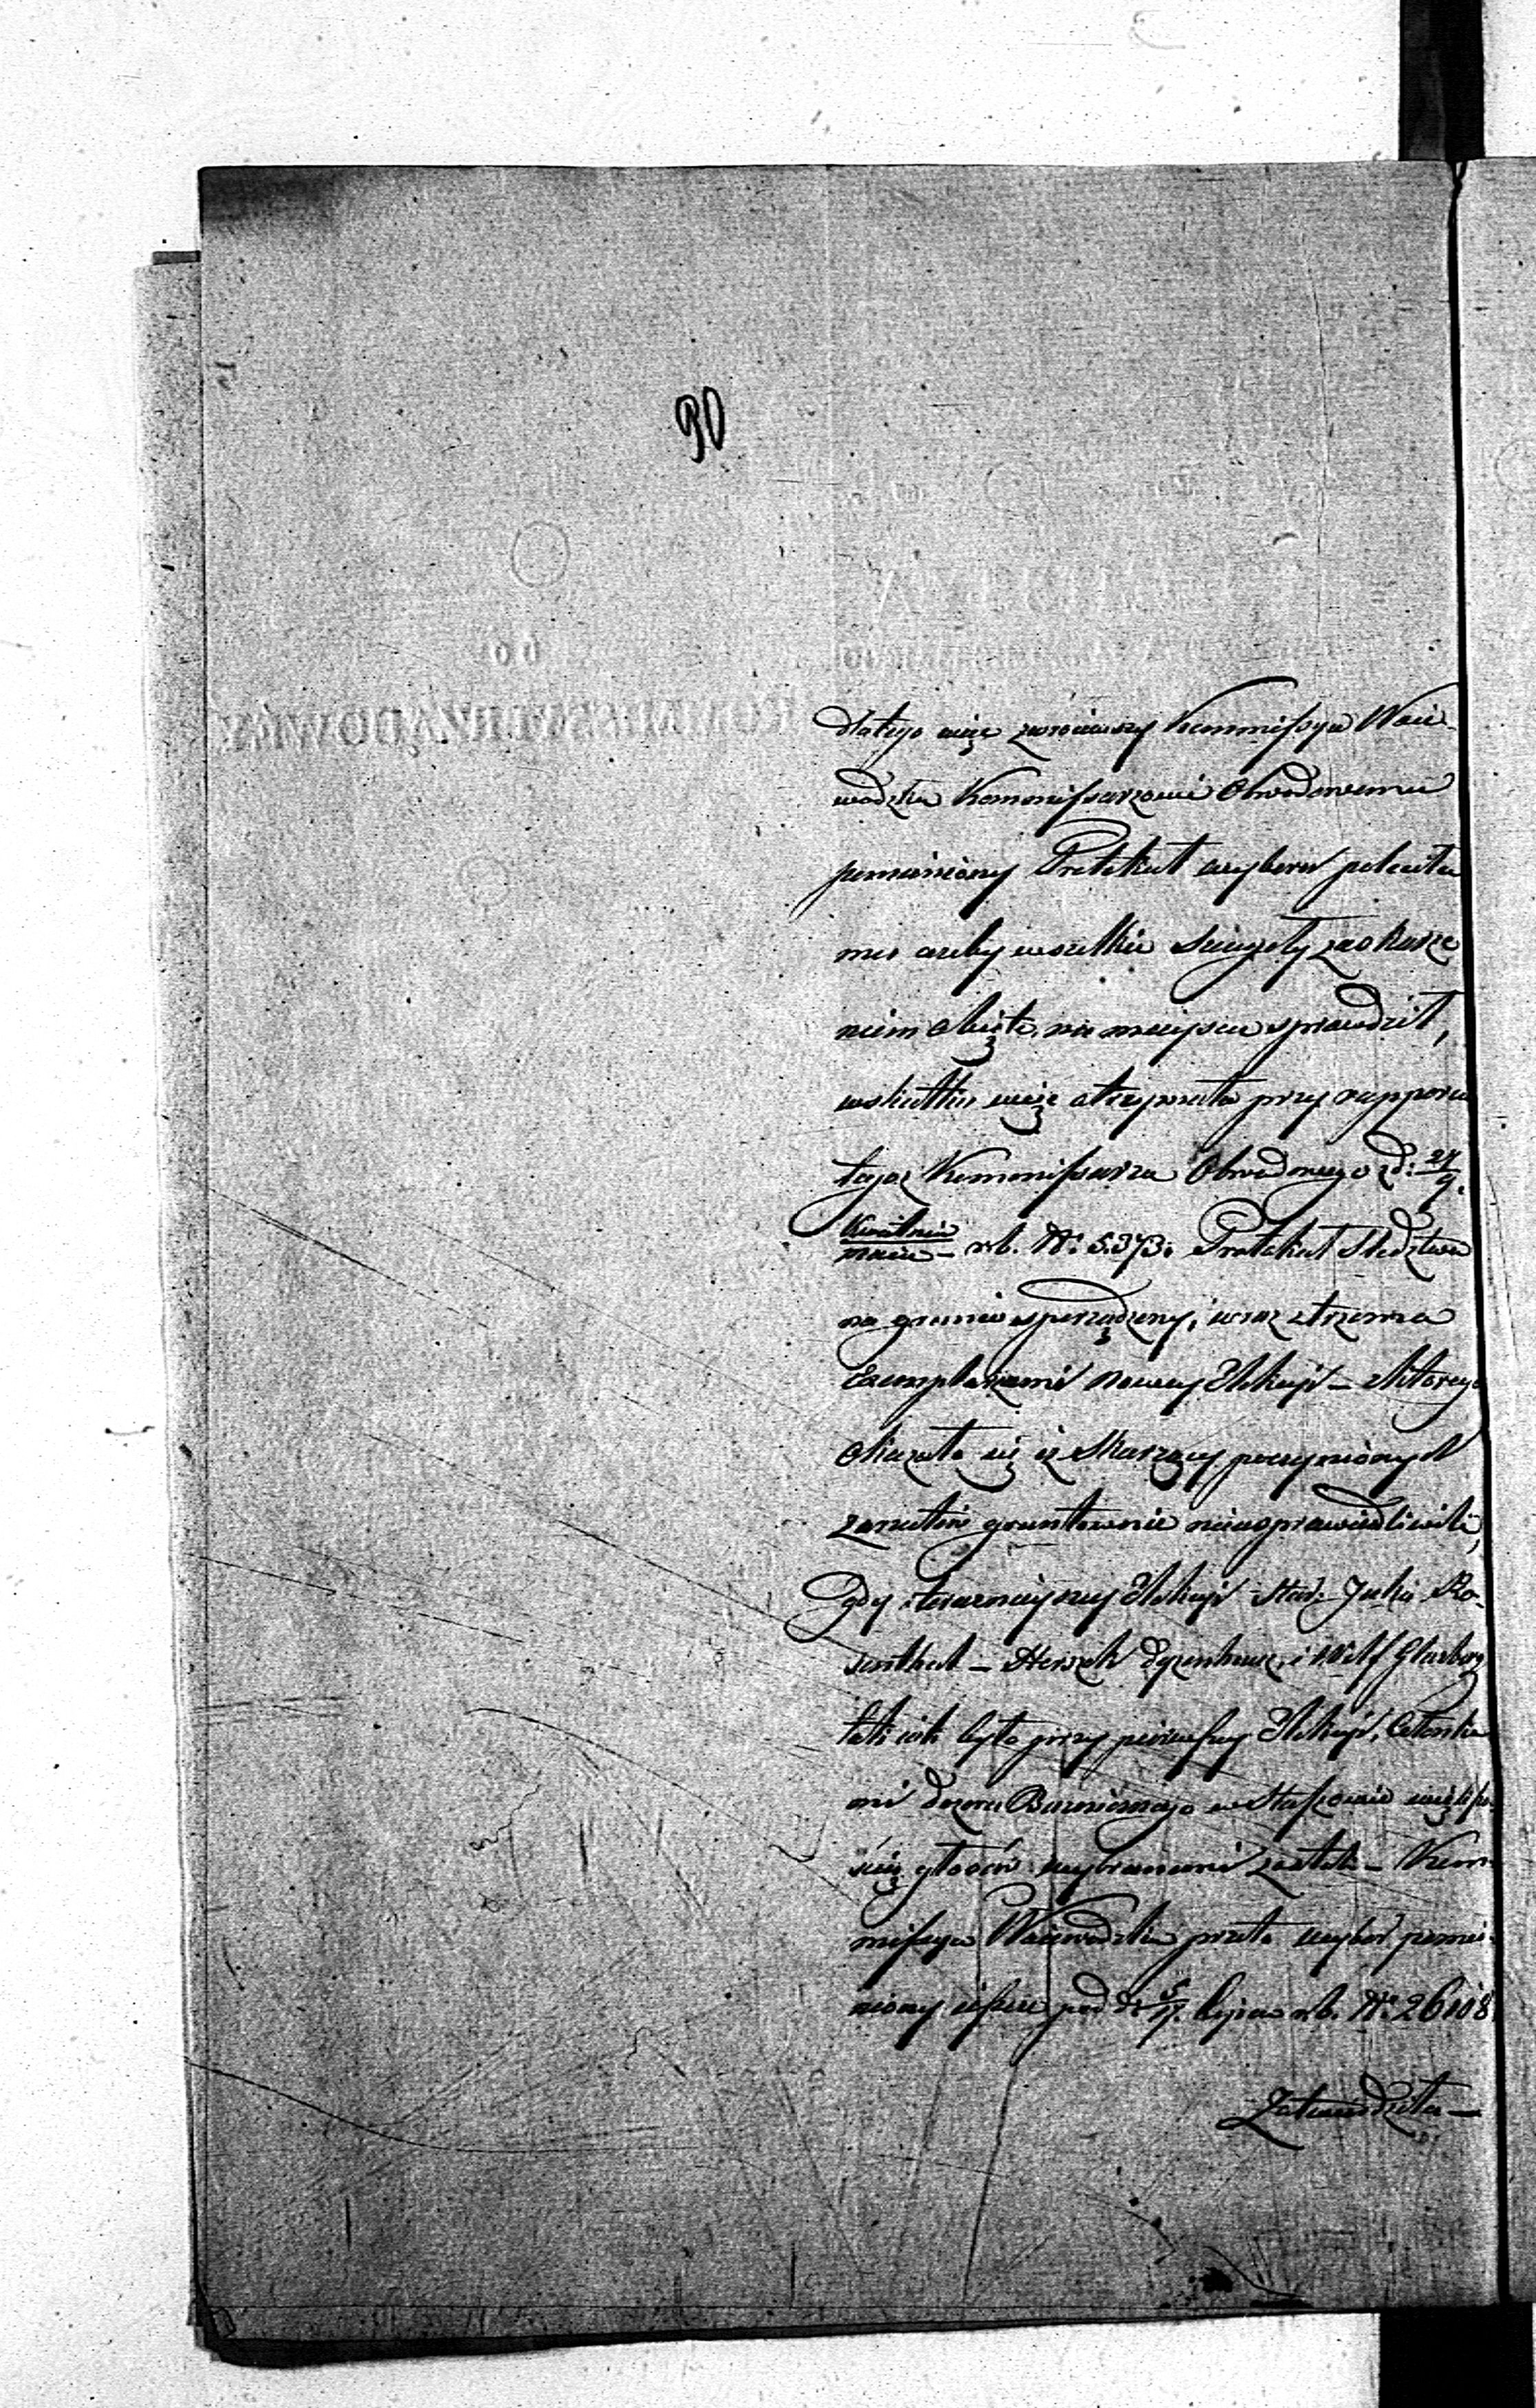 90
dlatego więc zwróciwszy Kommissya Woie-
wódzka Kommissarzowi Obwodowemu
pomieniony Protokuł wyborów poleciła
mu ażeby wszelkie szczegóły zaskarże
niem objęte, na mieyscu sprawdził,
wskutku więc otrzymała przy rappor
tegoż Kommissarza Obwodowego zd: 27/9.
Kwietnia/Maia – r.b. Nr. 5373. Protokuł Śledztwa
na gruncie sporządzony, i wraz ztrzema
Exemplarzami nowey Elekcyi – zktórego
okazało się iż Skarżący poczynionych
zarzutów gruntownie nieusprawiedliwili,
gdy terazniejszey Elekcyi Star. Jukie Ro-
senthal – Herszek Dyzenhauz, i Wolf Glazberg
tak iak było przy pierwszey Elekcyi, Członka
mi dozoru Bużniczego w Staszowie
ścią głosów wybranemi zostali – Kom-
missya Woiewódzka przeto wybór pomie-
niony ieszcze pod d: 5/17. Lipca r.b. Nr. 26108
Zatwierdziła –
DO
KOMMISSYI RZĄDOWÉY